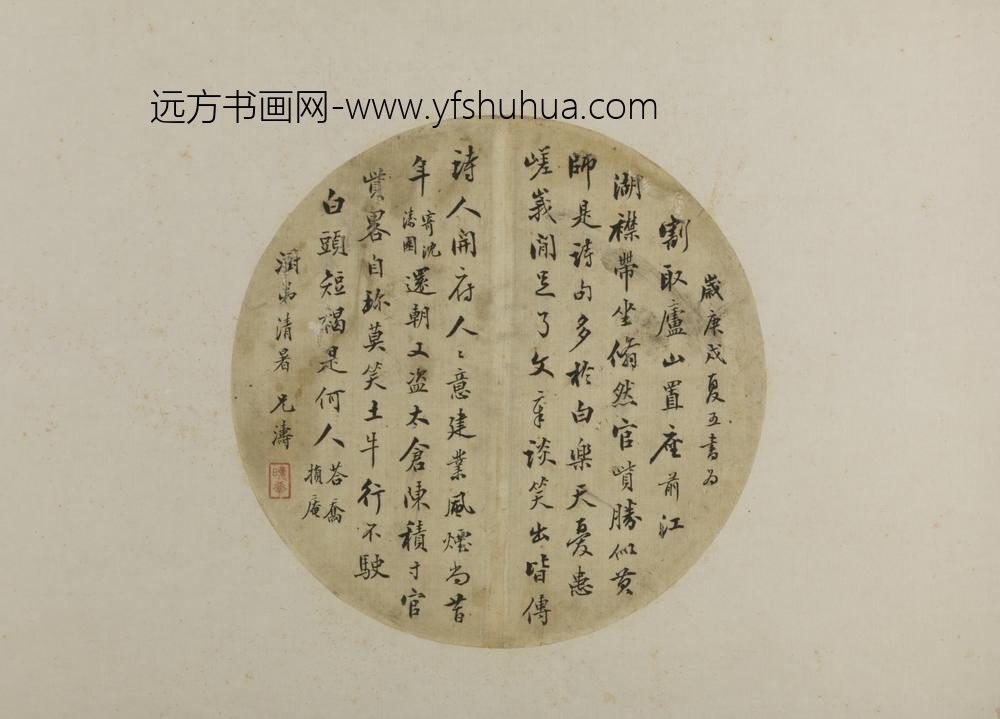 远方书画网-www.yfshuhua.com
歲庚戌夏五書為
割取廬山置座前江
湖襟帶坐翛然官資勝似黃
師是詩句多於白樂天憂患
嵯峩閒足了文章談笑出皆傳
詩人開府人〻意建業風煙尚昔
年寄沈濤園還朝又盜太倉陳積寸官
資畧自珎莫笑土牛行不駛
白頭短褐是何人荅喬損庵
弟清暑 兄濤